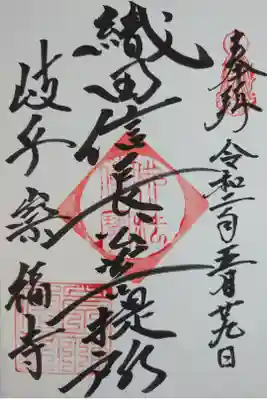 奉拝 令和二年五月廿九日
織田信長公菩提所
岐阜 崇福寺